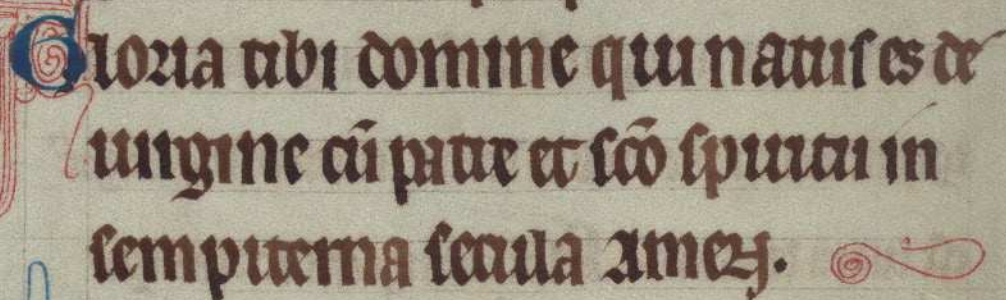 Gloria tibi domine qui natus es de
uirgine cū patre et scō spiritu in
sempiterna secula amen.